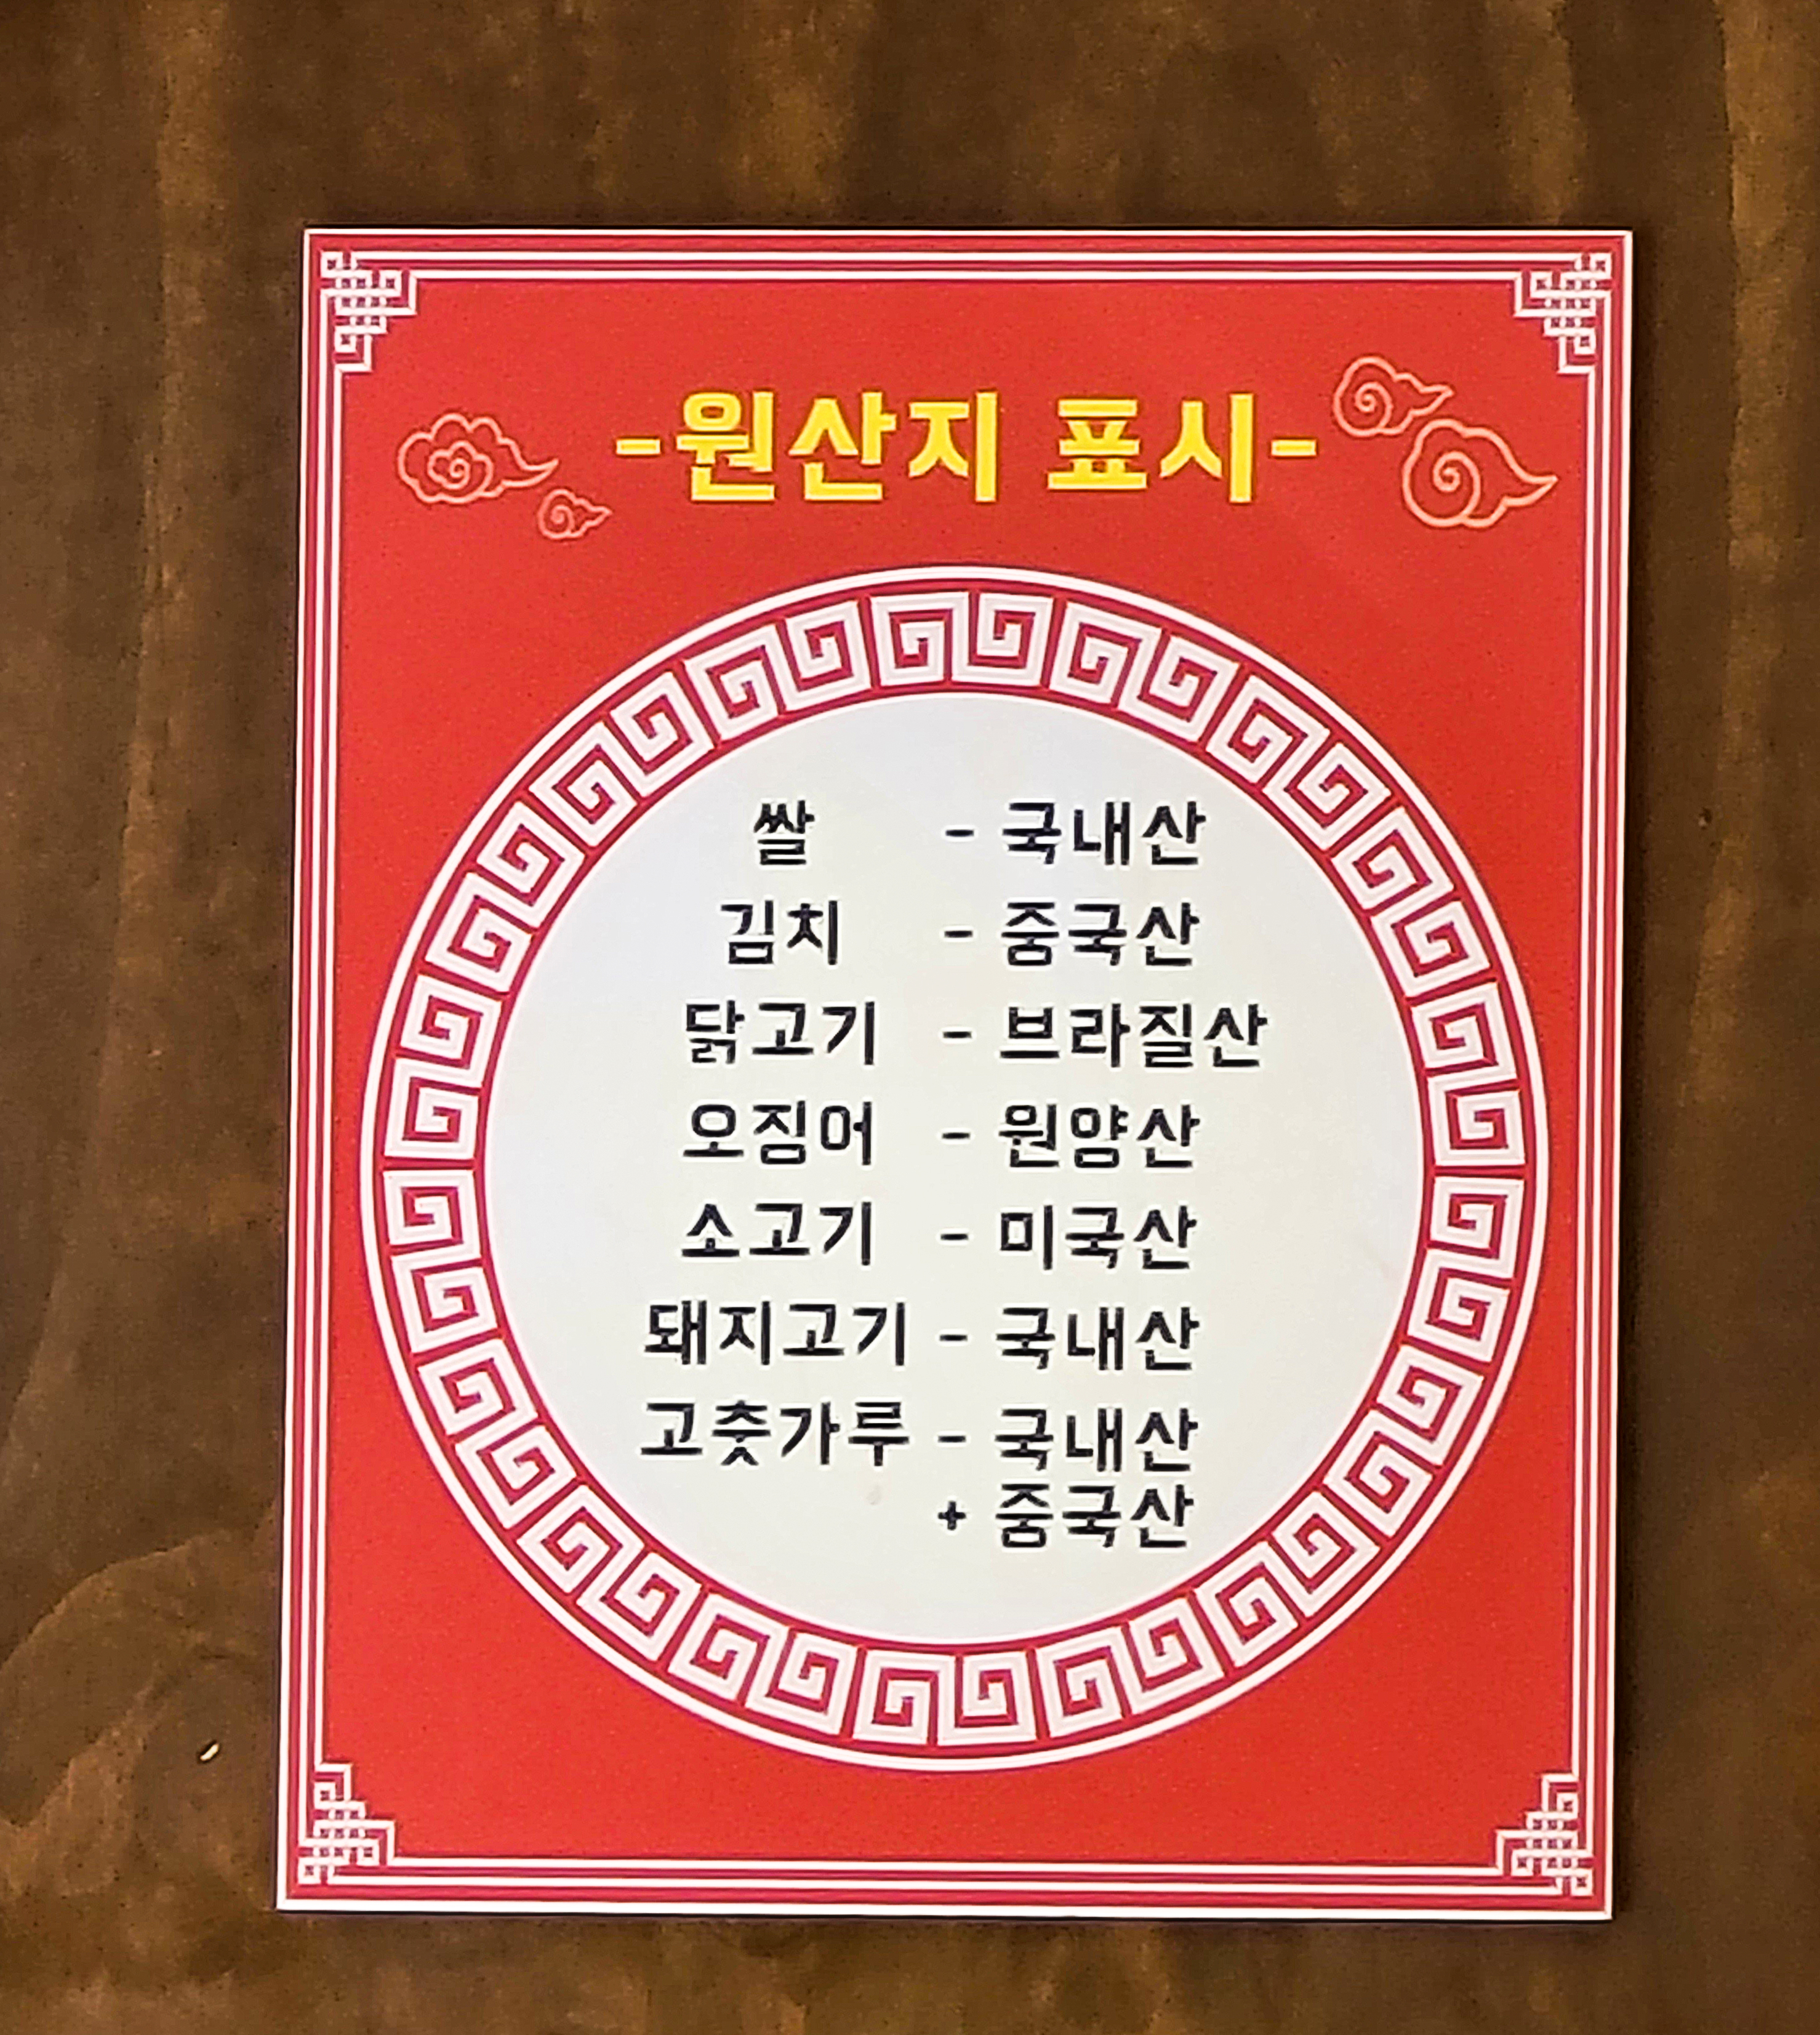 -원산지 표시-
쌀 - 국내산
김치 - 중국산
닭고기 - 브라질산
오징어 - 원양산
소고기 - 미국산
돼지고기 - 국내산
고춧가루 - 국내산
+ 중국산